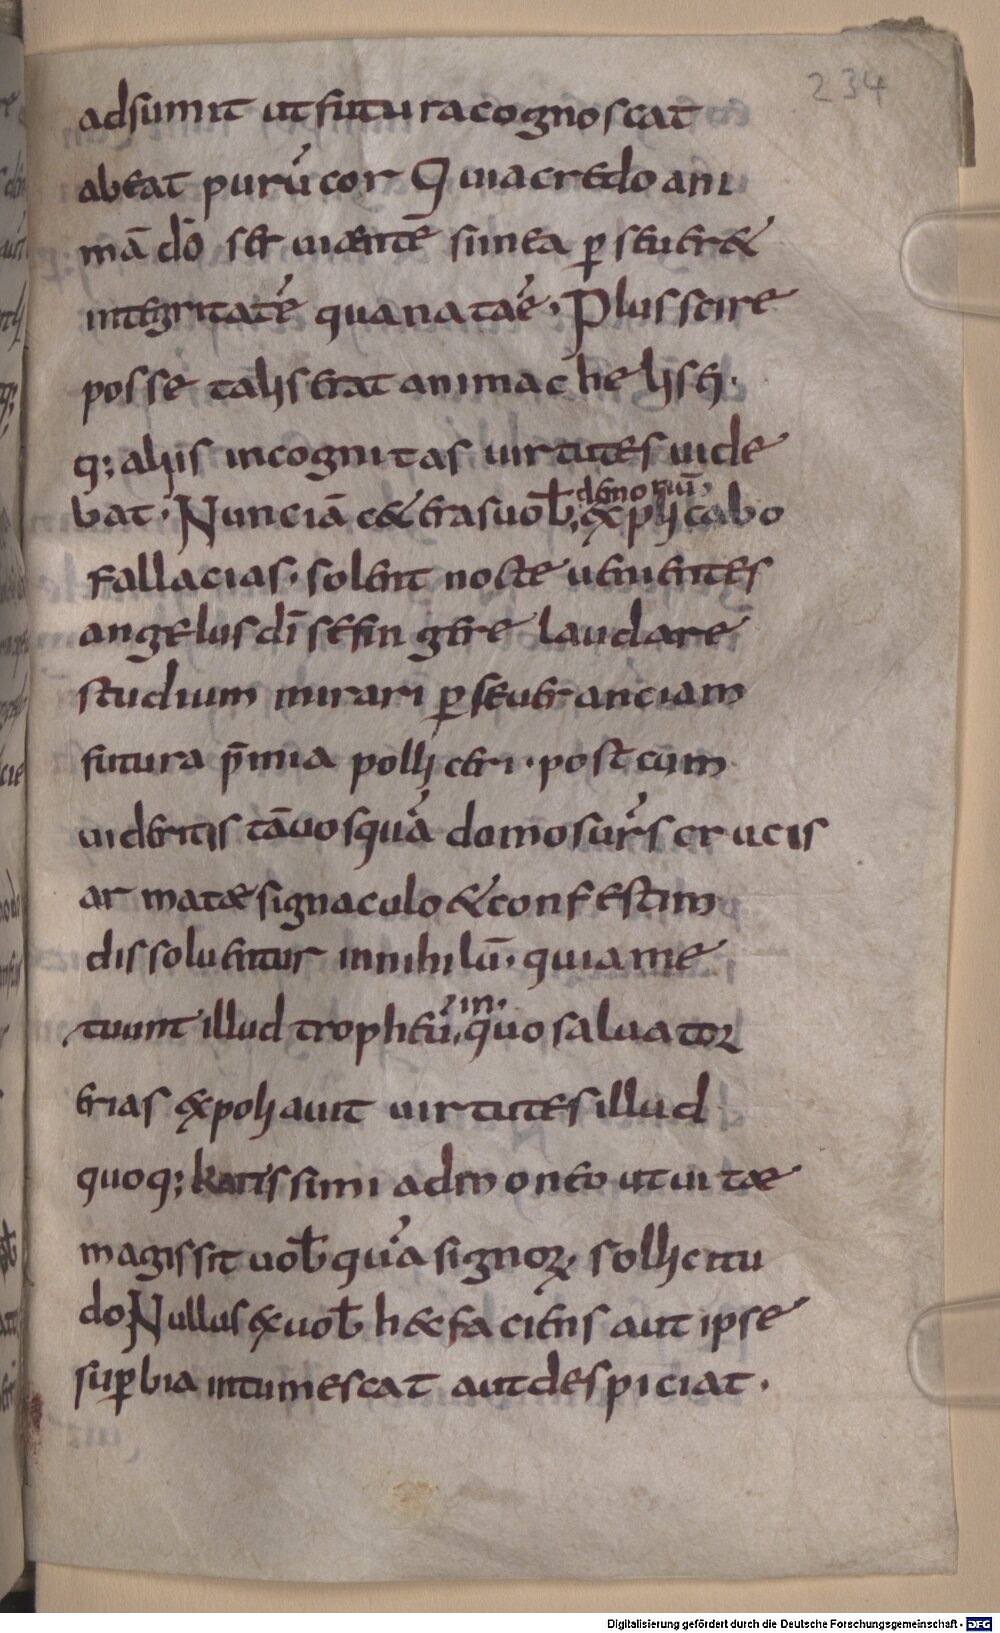 234
adsumit ut futura cognoscat
abeat purū cor Quia credo ani
mā dō seruientē si in ea p̱seuer&
integritatē qua nata ē. Plus scire
posse talis erat anima helisei.
q; aliis incognitas uirtutes uide
bat. Nunc iā c&eras uob̄. demonū. explicabo
fallacias. solent nocte uenientes
angelus dī se fingere laudare
studium mirari p̱seueranciam
futura p̄mia polliceri. post cum
uideritis tā uos quā domos ur̄s crucis
armatae signaculo & confestim
dissoluentur in nihilū. quia me
tuunt illud tropheū. in. quo saluator
erias expoliauit uirtutes illud
quoq; karissimi admoneo ut uitae
magis sit uob̄ quā signoꝝ sollicitu
do Nullus ex uob̄ hec faciens aut ipse
sup̱bia intumescat aut despiciat.
Digitalisierung gefördert durch die Deutsche Forschungsgemeinschaft - DFG